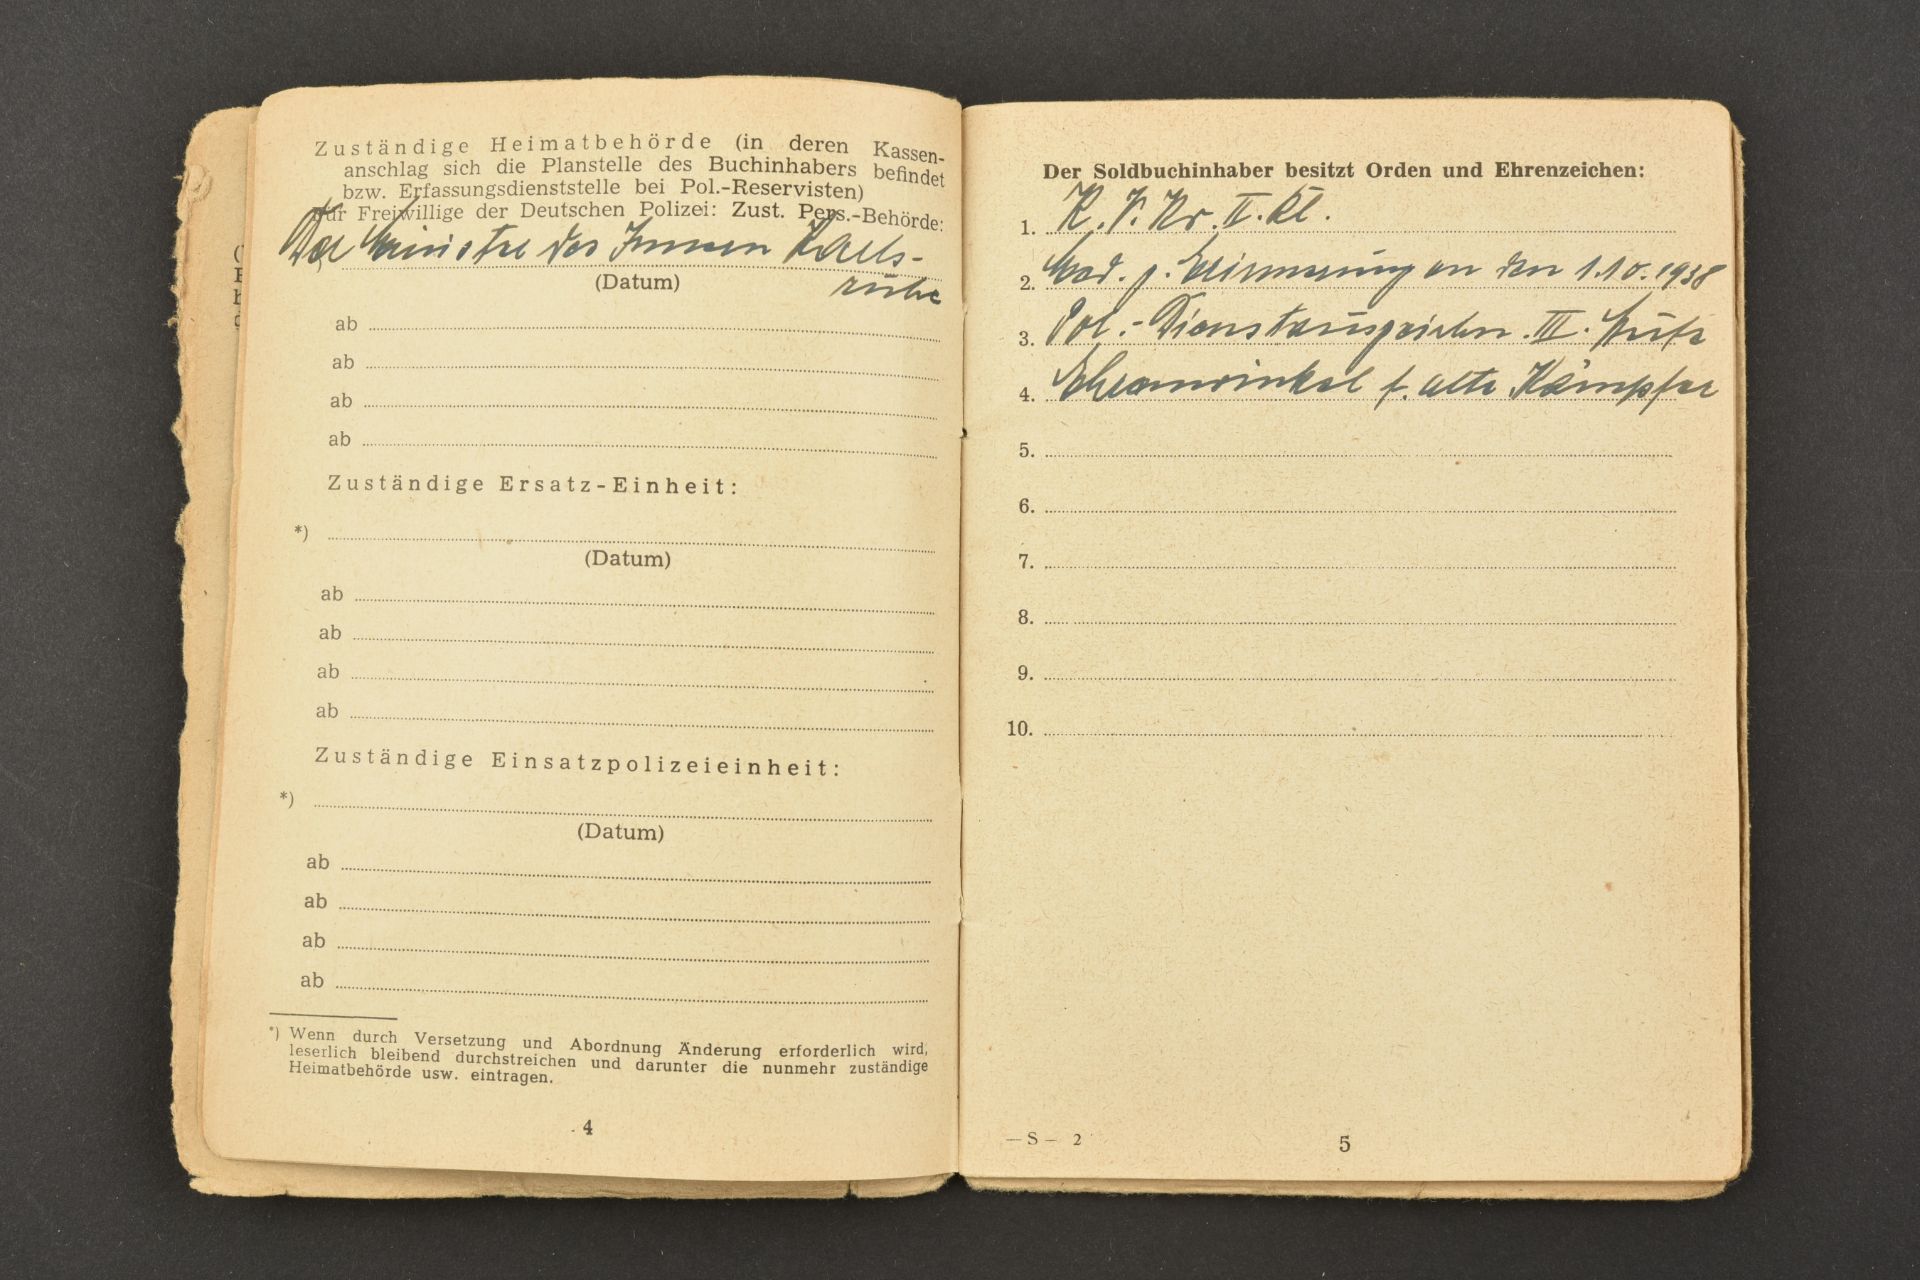 Zuständige Heimatbehörde (in deren Kassen-
anschlag sich die Planstelle des Buchinhabers befindet
bzw. Erfassungsdienststelle bei Pol.-Reservisten)
für Freiwillige der Deutschen Polizei: Zust. Pers.-Behörde:
Der Minister des Innern Karls-
(Datum) ruhe
ab
ab
ab
ab
Zuständige Ersatz-Einheit:
*)
(Datum)
ab
ab
ab
ab
Zuständige Einsatzpolizeieinheit:
*)
(Datum)
ab
ab
ab
ab
*) Wenn durch Versetzung und Abordnung Änderung erforderlich wird,
leserlich bleibend durchstreichen und darunter die nunmehr zuständige
Heimatbehörde usw. eintragen.
4
Der Soldbuchinhaber besitzt Orden und Ehrenzeichen:
1. K.V.Kr. II. Kl.
2. Med. z. Erinnerung an den 1.10.1938
3. Pol.-Dienstauszeichn. III. Stufe
4. Ehrenwinkel f. alte Kämpfer
5.
6.
7.
8.
9.
10.
— S — 2
5